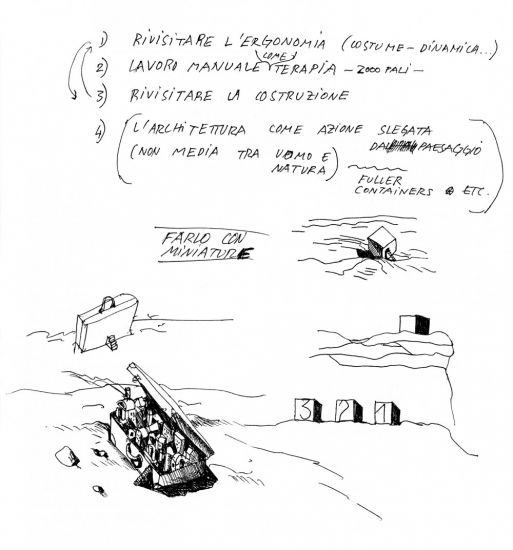 1) RIVISITARE L'ERGONOMIA (COSTUME – DINAMICA...)
COME
2) LAVORO MANUALE TERAPIA – 2000 PALI –
3) RIVISITARE LA COSTRUZIONE
4) (L'ARCHITETTURA COME AZIONE SLEGATA
DAL PAESAGGIO
(NON MEDIA TRA UOMO E
NATURA)
FULLER
CONTAINERS ETC.)
FARLO CON
MINIATURE
3 2 1